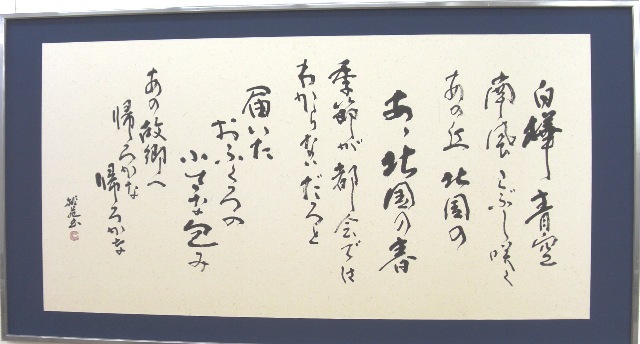 白樺 青空
南風 こぶし咲く
あの丘 北国の
あゝ北国の春
季節が都会では
わからないだろと
届いた
おふくろの
小さな包み
あの故郷へ
帰ろかな
帰ろかな